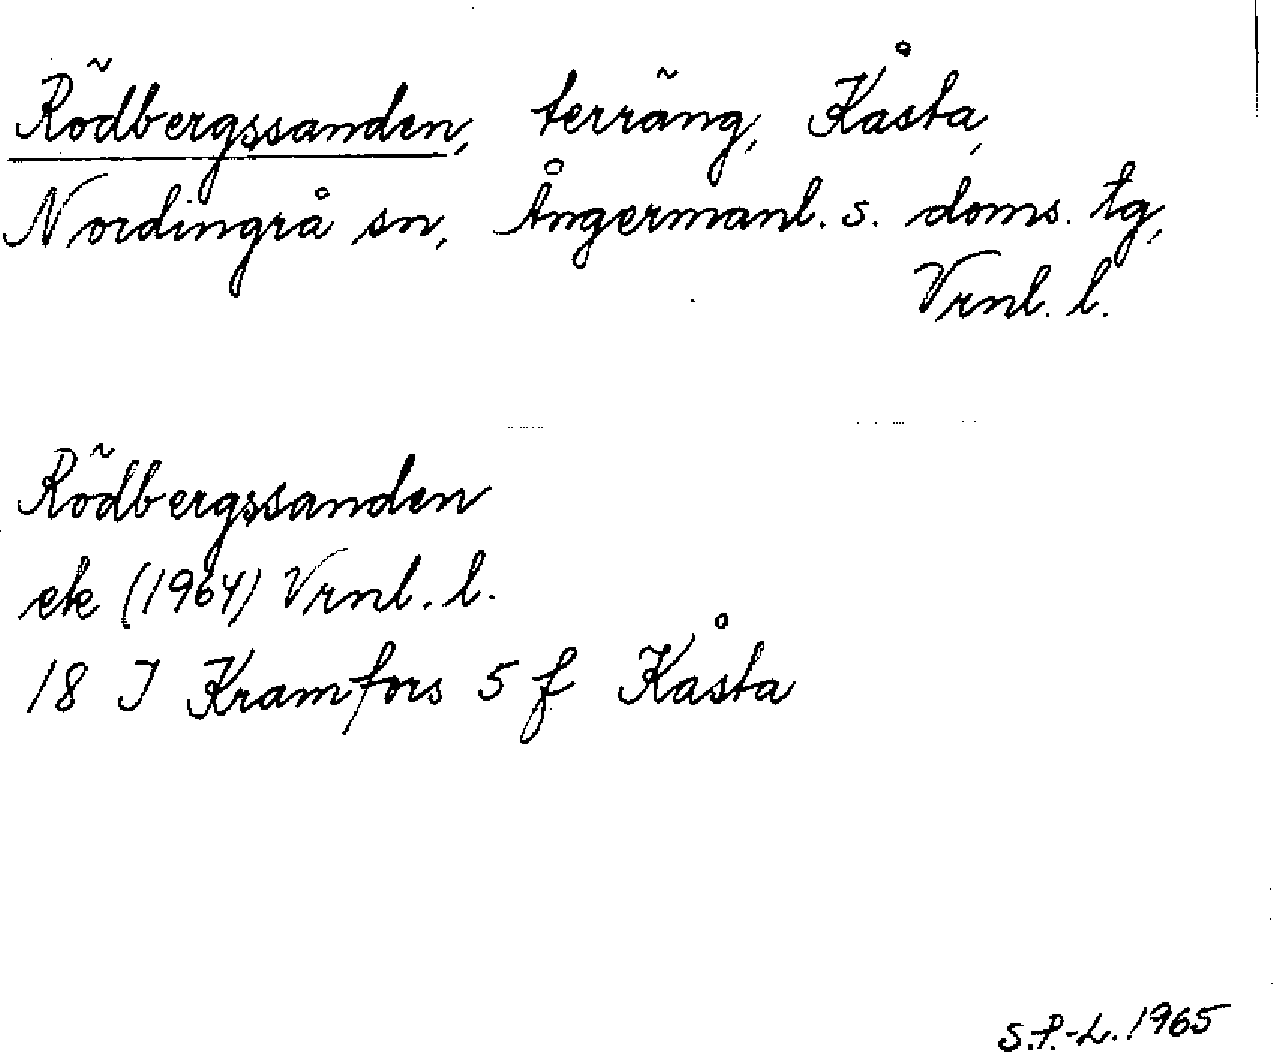 Rödbergssanden, terräng, Kåsta,
Nordingrå sn, Ångermanl. s. doms. tg,
Vrnl. l.
Rödbergssanden
ek (1964) Vrnl. l.
18 J Kramfors 5 f Kåsta
S.P.-L. 1965